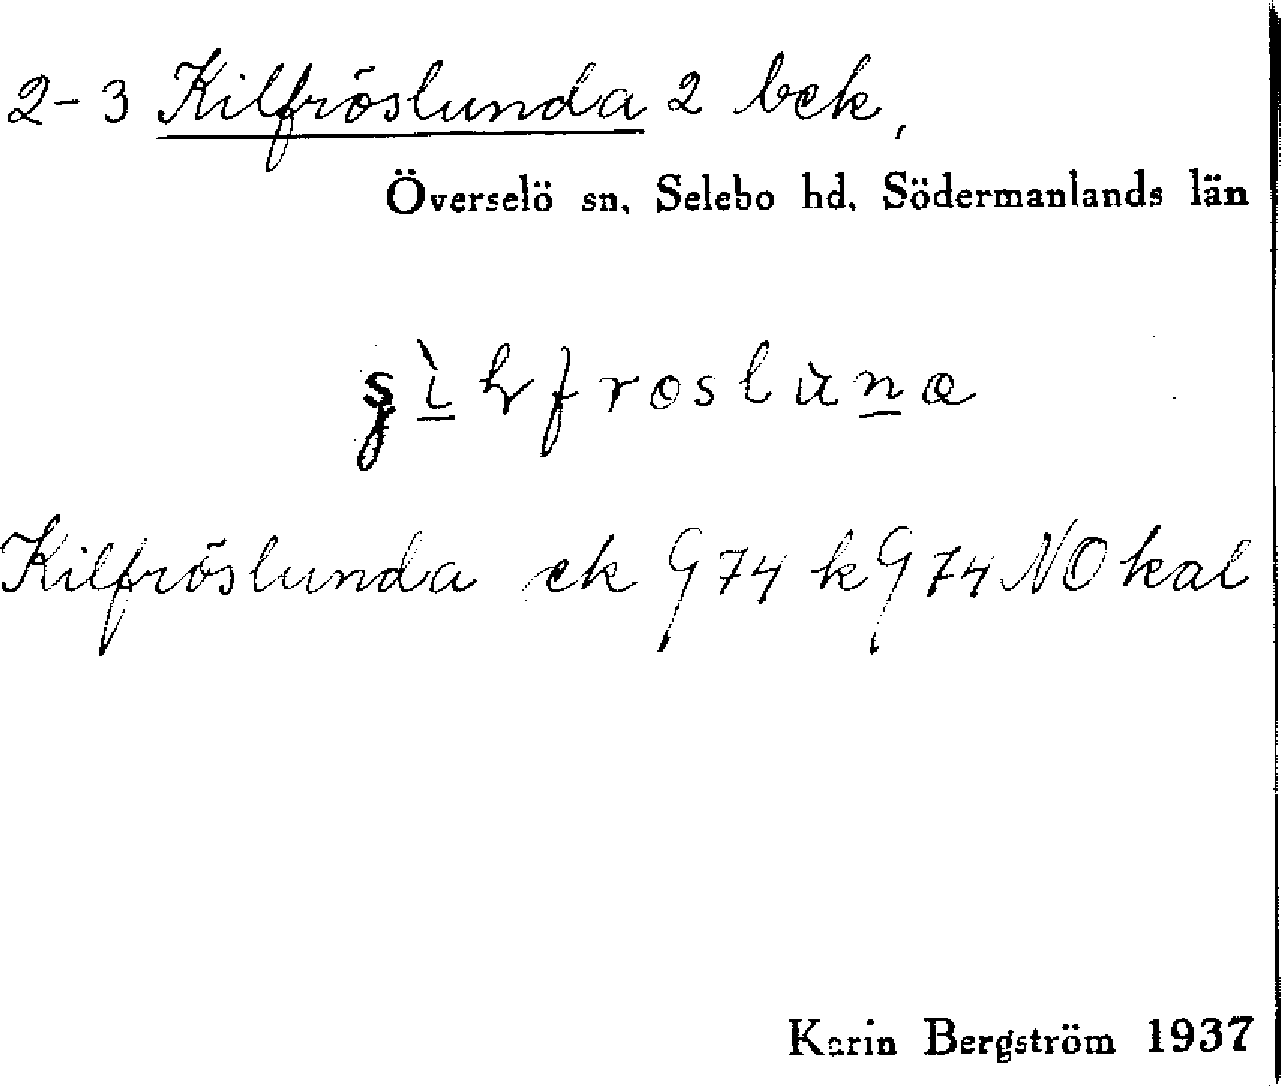 2-3 Kilfröslunda 2 bek,
Överselö sn, Selebo hd, Södermanlands län
Kilfröslunda ek G74 k G74 NO kal
Karin Bergström 1937